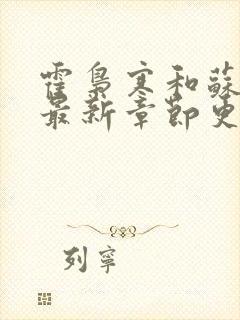 霍梟寒和蘇
最新章節更
列寧